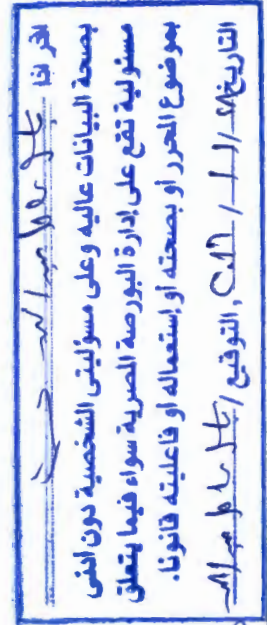 اقر انا
بصحة البيانات عاليه وعلى مسؤليتى الشخصية دون ادنى
مسئولية تقع على إدارة البورصة المصرية سواء فيما يتعلق
بموضوع المحرر او بصحته او إستعماله او فاعليته قانونا.
التاريخ / / ، التوقيع /